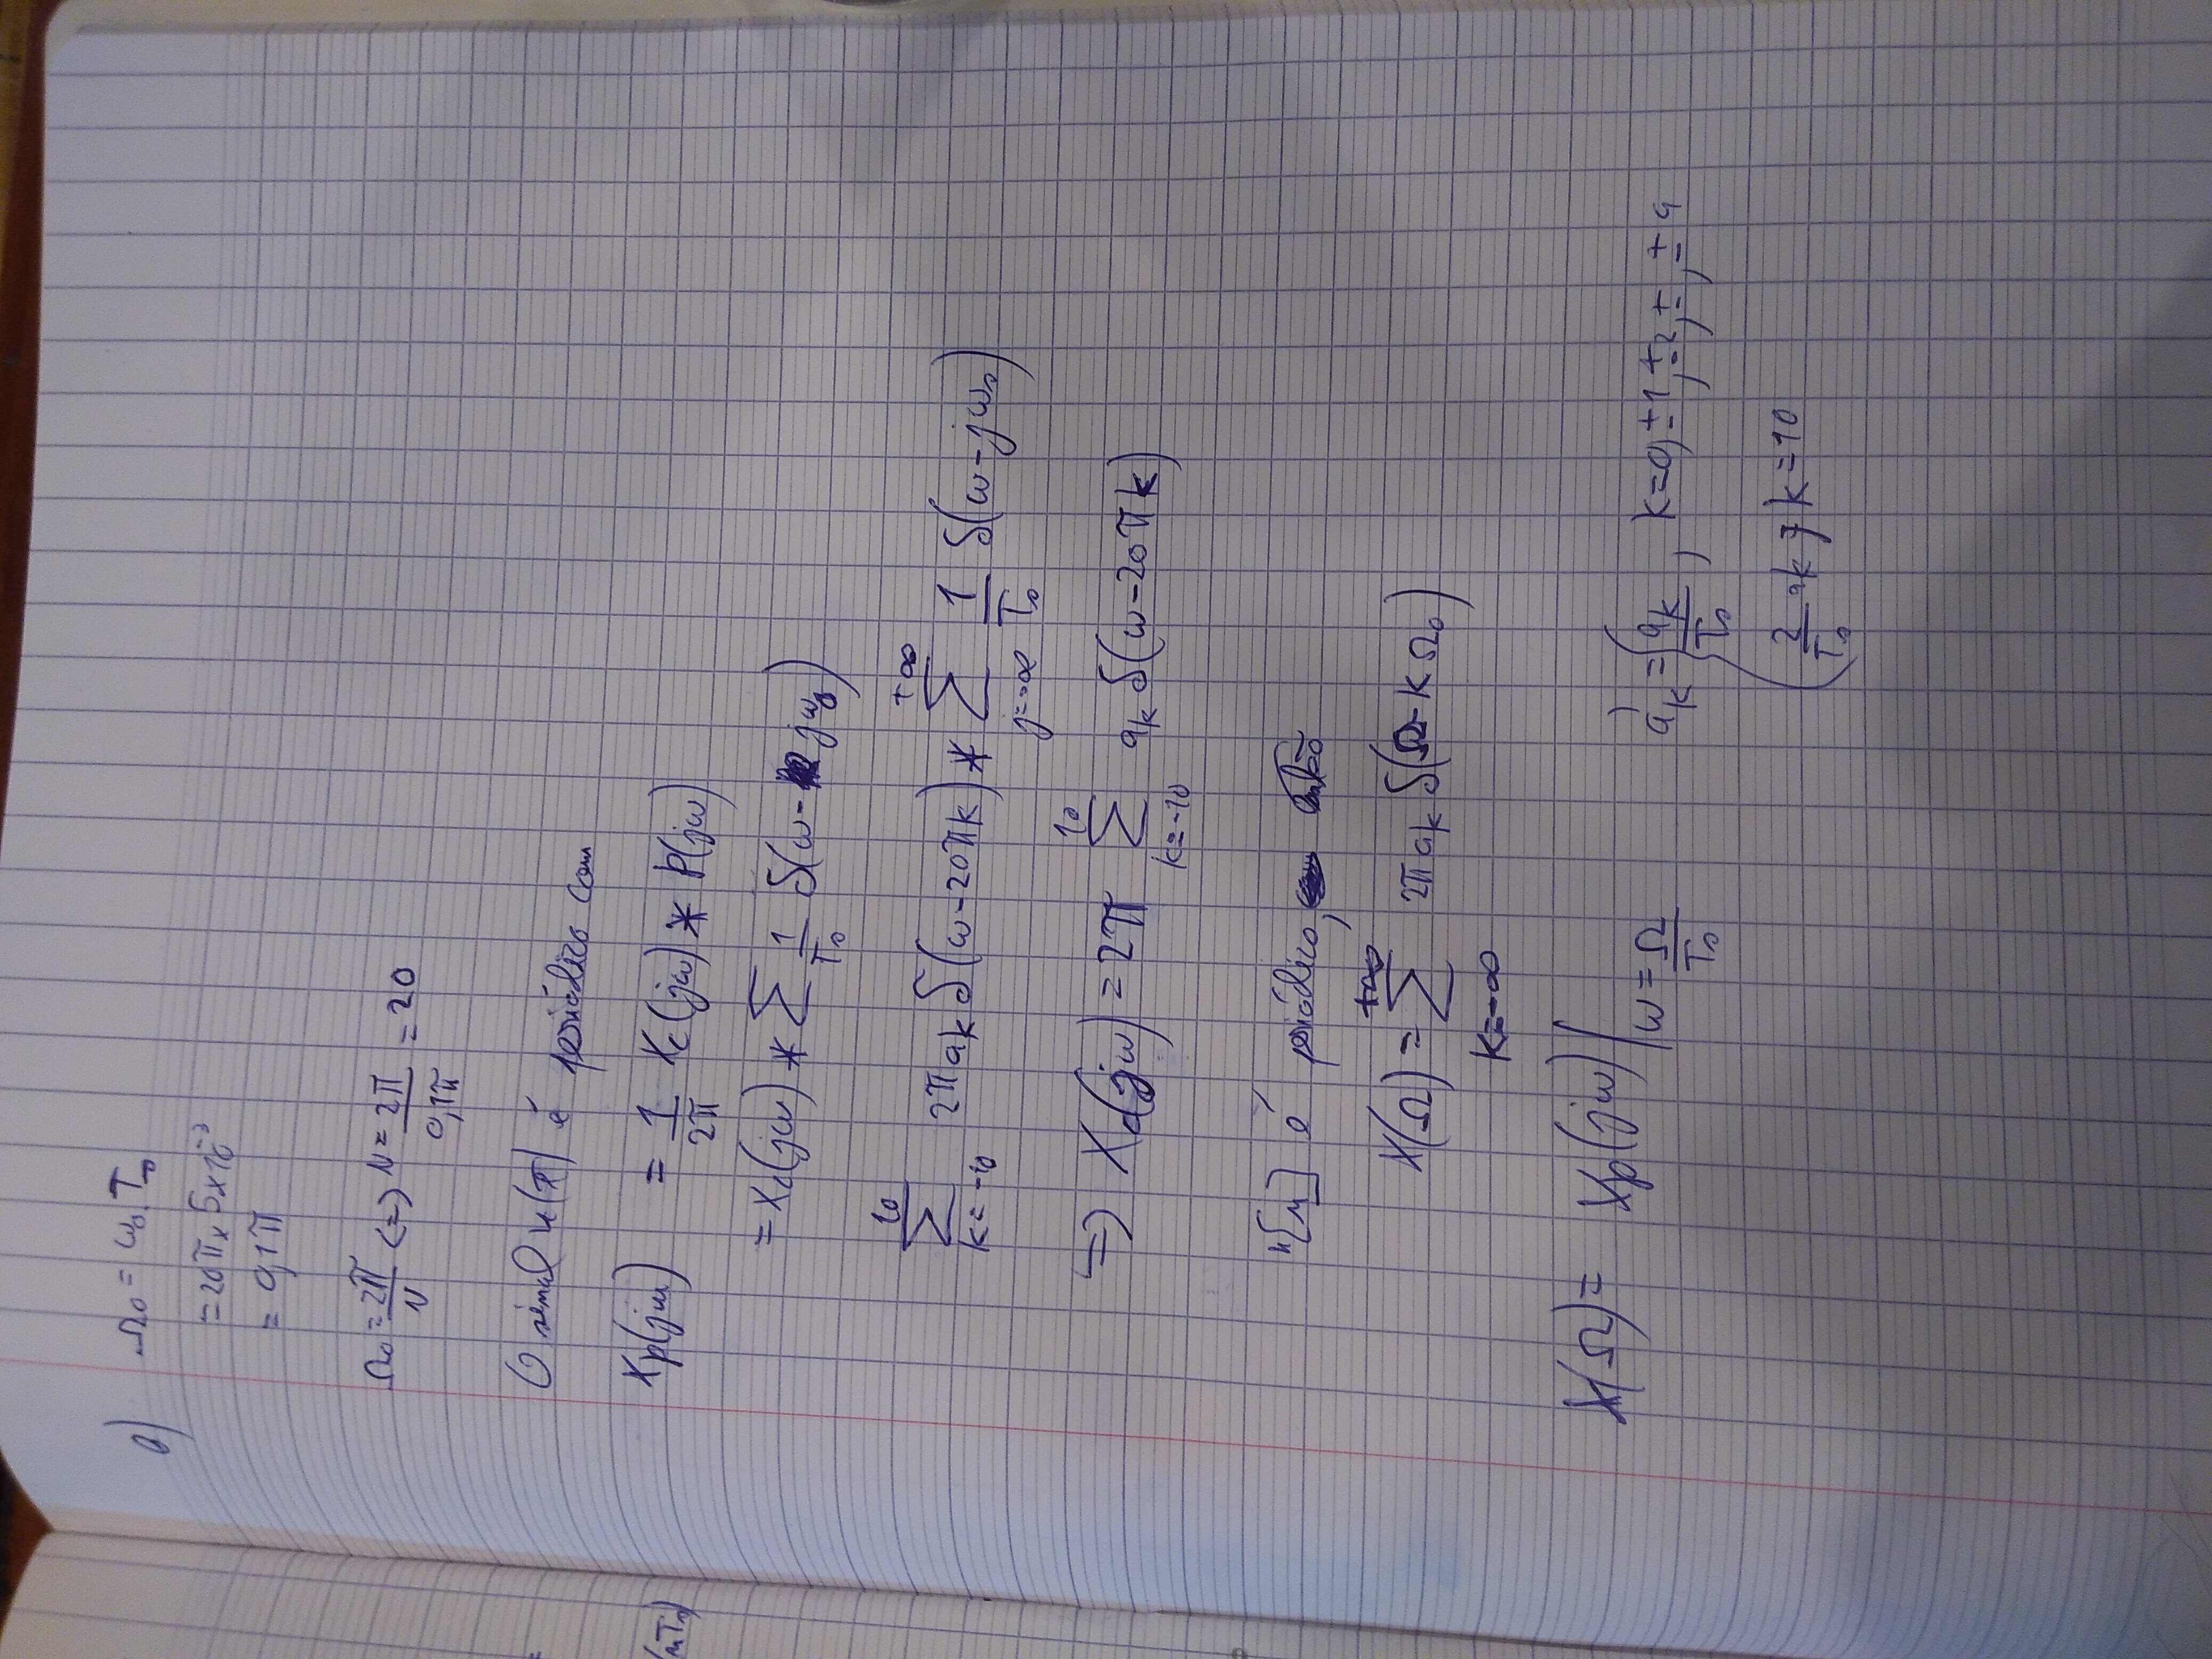 a) Ω₀ = ω₀.Tₛ
= 20π x 5x10⁻³
= 0,1π
Ω₀ = 2π/N <=> N = 2π/0,1π = 20
O sinal x(t) é periódico com
Xp(jω) = 1/2π Xc(jω) * P(jω)
= Xc(jω) * ∑ 1/Tₛ δ(ω - jωₛ)
∑_{k=-10}^{10} 2π aₖ δ(ω-20πk) * ∑_{j=-∞}^{+∞} 1/Tₛ δ(ω-jωₛ)
=> Xc(jω) = 2π ∑_{k=-10}^{10} aₖ δ(ω-20πk)
x[n] é periódico, então
X(Ω) = ∑_{k=-∞}^{+∞} 2π aₖ δ(Ω-kΩ₀)
X(Ω) = Xp(jω)|_{ω = Ω/Tₛ}
a'ₖ = { aₖ/Tₛ , k=0,±1,±2,±,±9
2/Tₛ aₖ , k=10
(nTₛ)